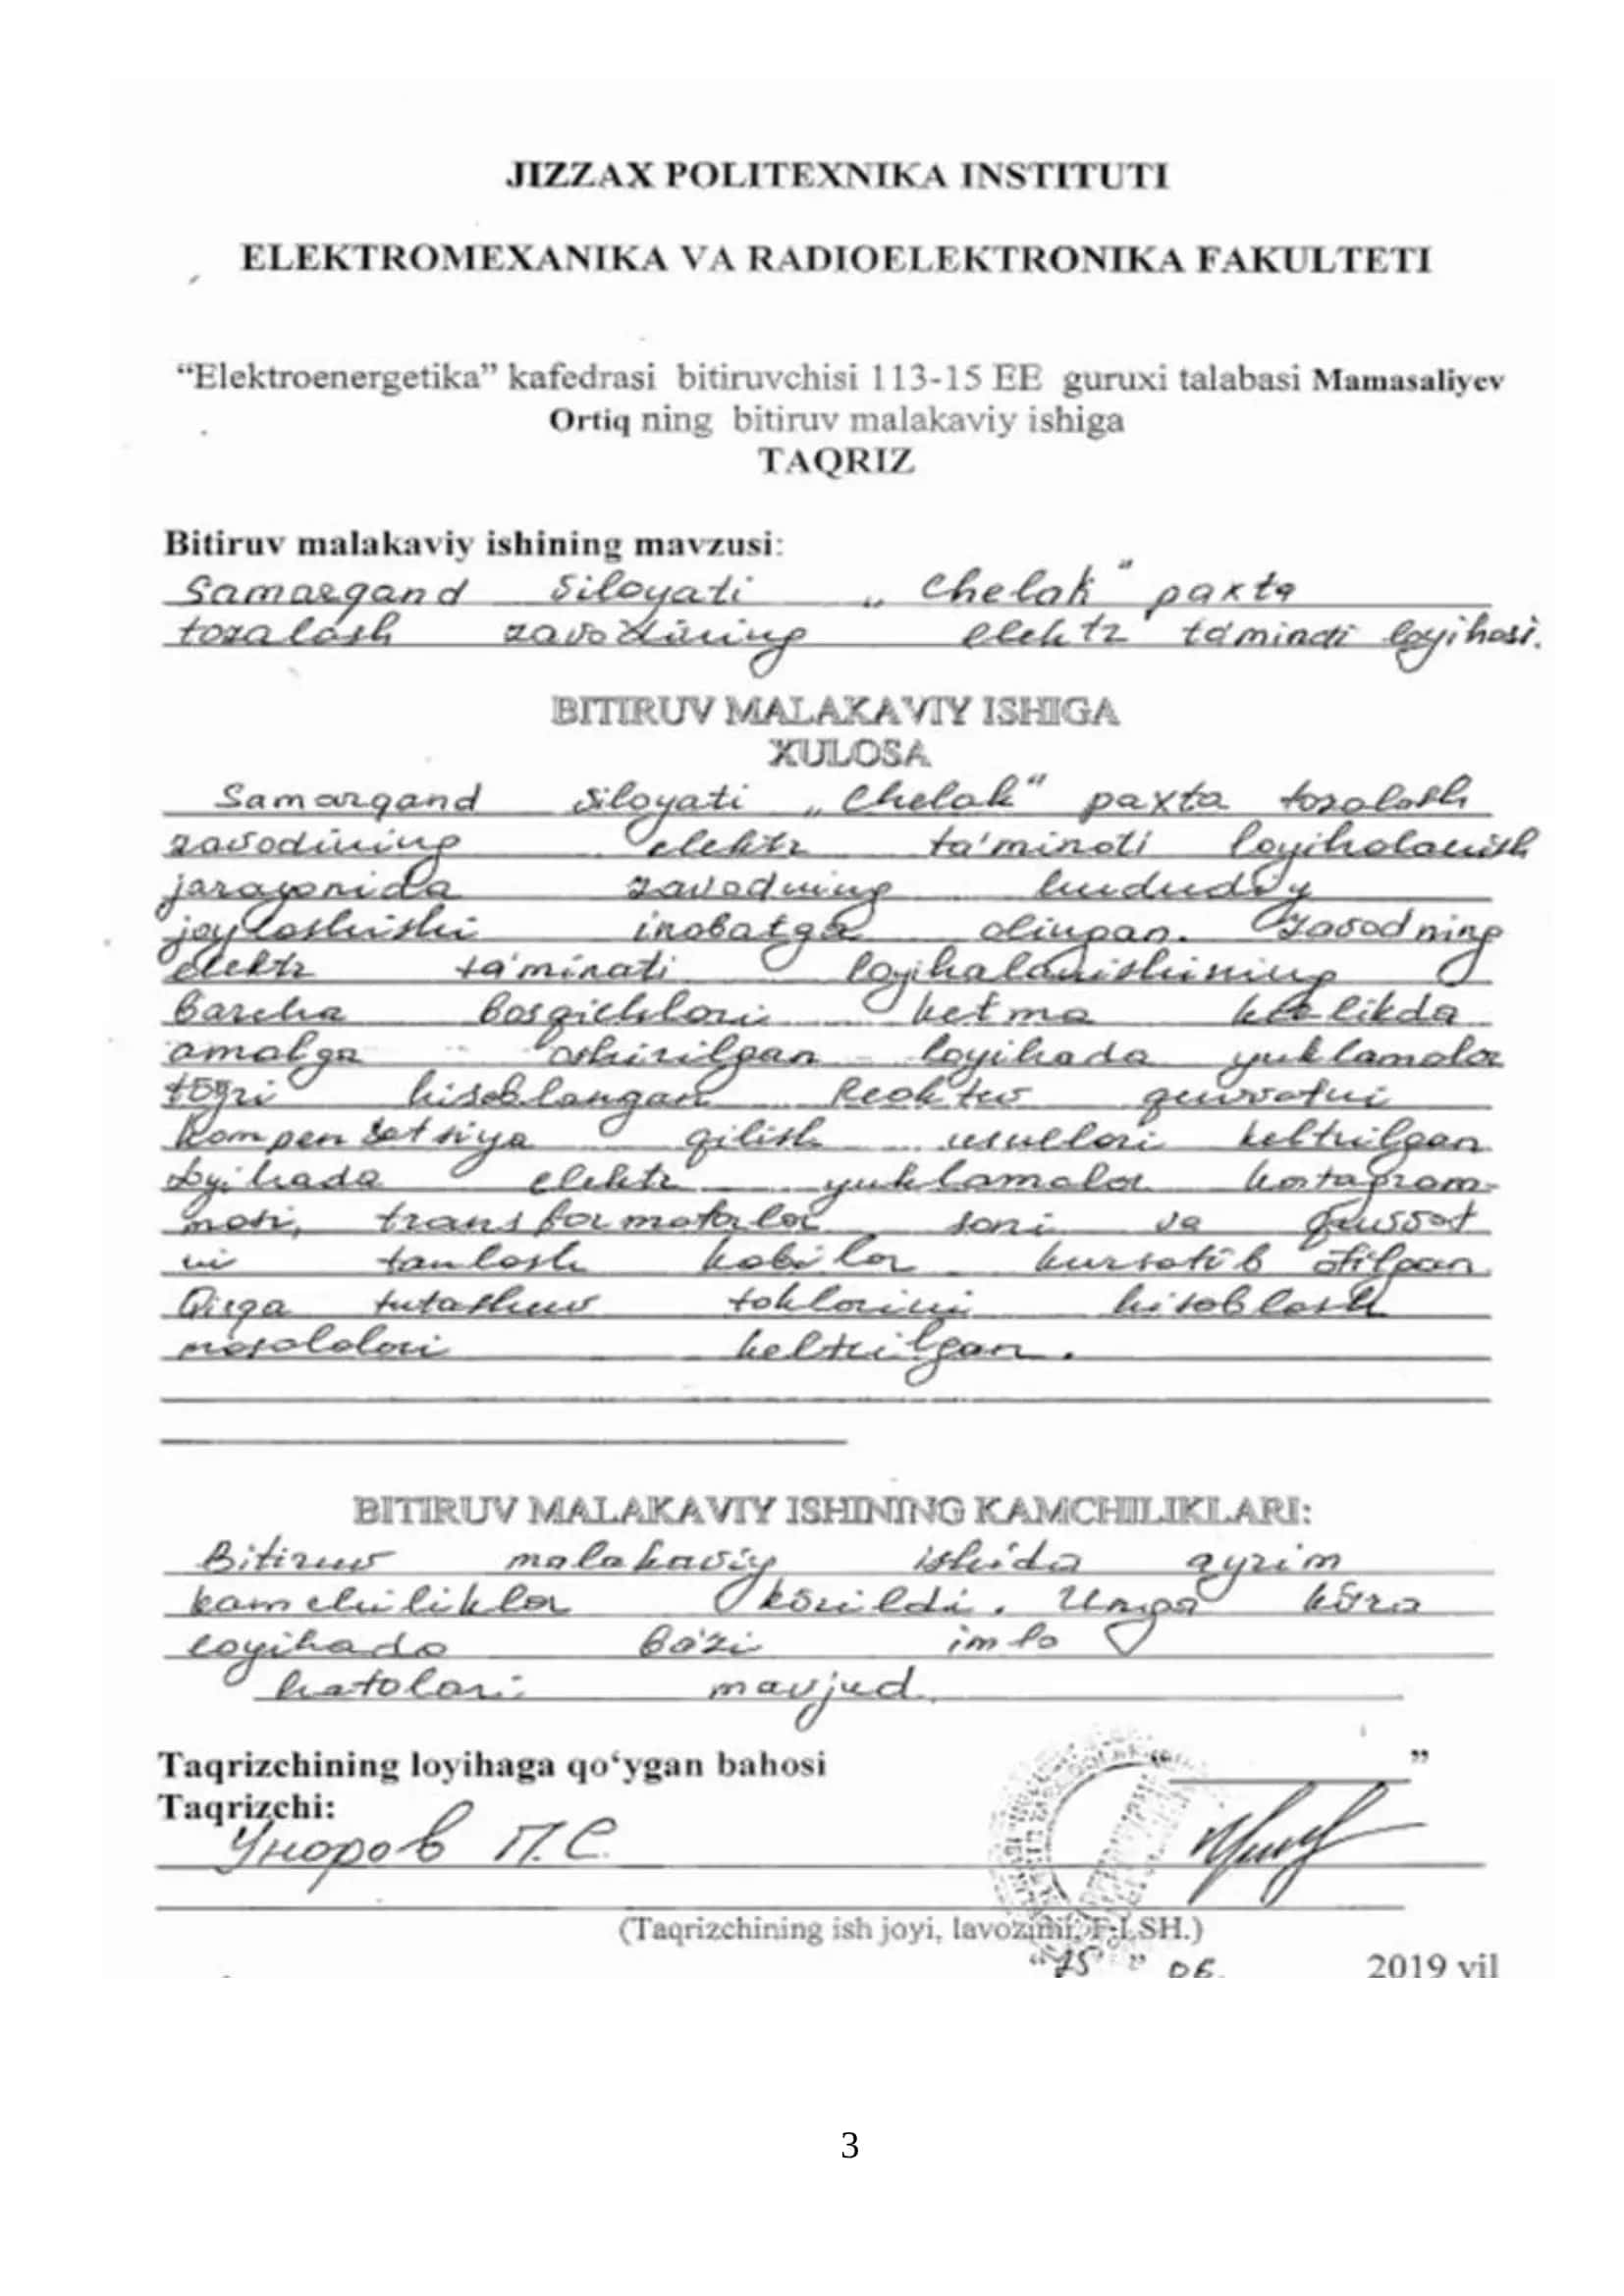 JIZZAX POLITEXNIKA INSTITUTI
ELEKTROMEXANIKA VA RADIOELEKTRONIKA FAKULTETI
“Elektroenergetika” kafedrasi bitiruvchisi 113-15 EE guruxi talabasi Mamasaliyev
Ortiq ning bitiruv malakaviy ishiga
TAQRIZ
Bitiruv malakaviy ishining mavzusi:
Samarqand siloyati „Chelak“ paxta
tozalash zavodining elektr ta'minoti loyihasi.
BITIRUV MALAKAVIY ISHIGA
XULOSA
Samarqand siloyati „Chelak“ paxta tozalash
zavodining elektr ta'minoti loyiholanish
jarayonida zavodning hududiy
joylashishi inobatga olingan. Zavodning
elektr ta'minati loyihalanishining
barcha bosqichlari ketma ketlikda
amalga oshirilgan loyihada yuklamalar
tõgri hisoblangan Reaktiv quvvatni
kompensatsiya qilish usullari keltirilgan
Loyihada elektr yuklamalar kartagram-
masi, transformatorlar soni va quvvat
ni tanlash kabilar kursatib õtilgan
Qisqa tutashuv toklarini hisoblash
masalalari keltirilgan.
BITIRUV MALAKAVIY ISHINING KAMCHILIKLARI:
Bitiruv malakaviy ishida ayrim
kamchiliklar kõrildi. Unga kõra
loyihada ba'zi imlo
hatolari mavjud.
Taqrizchining loyihaga qo‘ygan bahosi “ ”
Taqrizchi:
Уноров П.С.
(Taqrizchining ish joyi, lavozimi, F.I.SH.)
“15” 06. 2019 yil
3